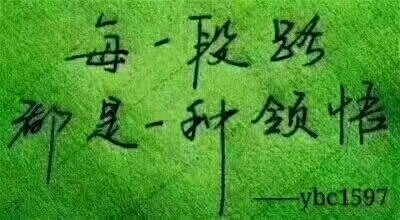 每一段路
都是一种领悟
——ybc1597